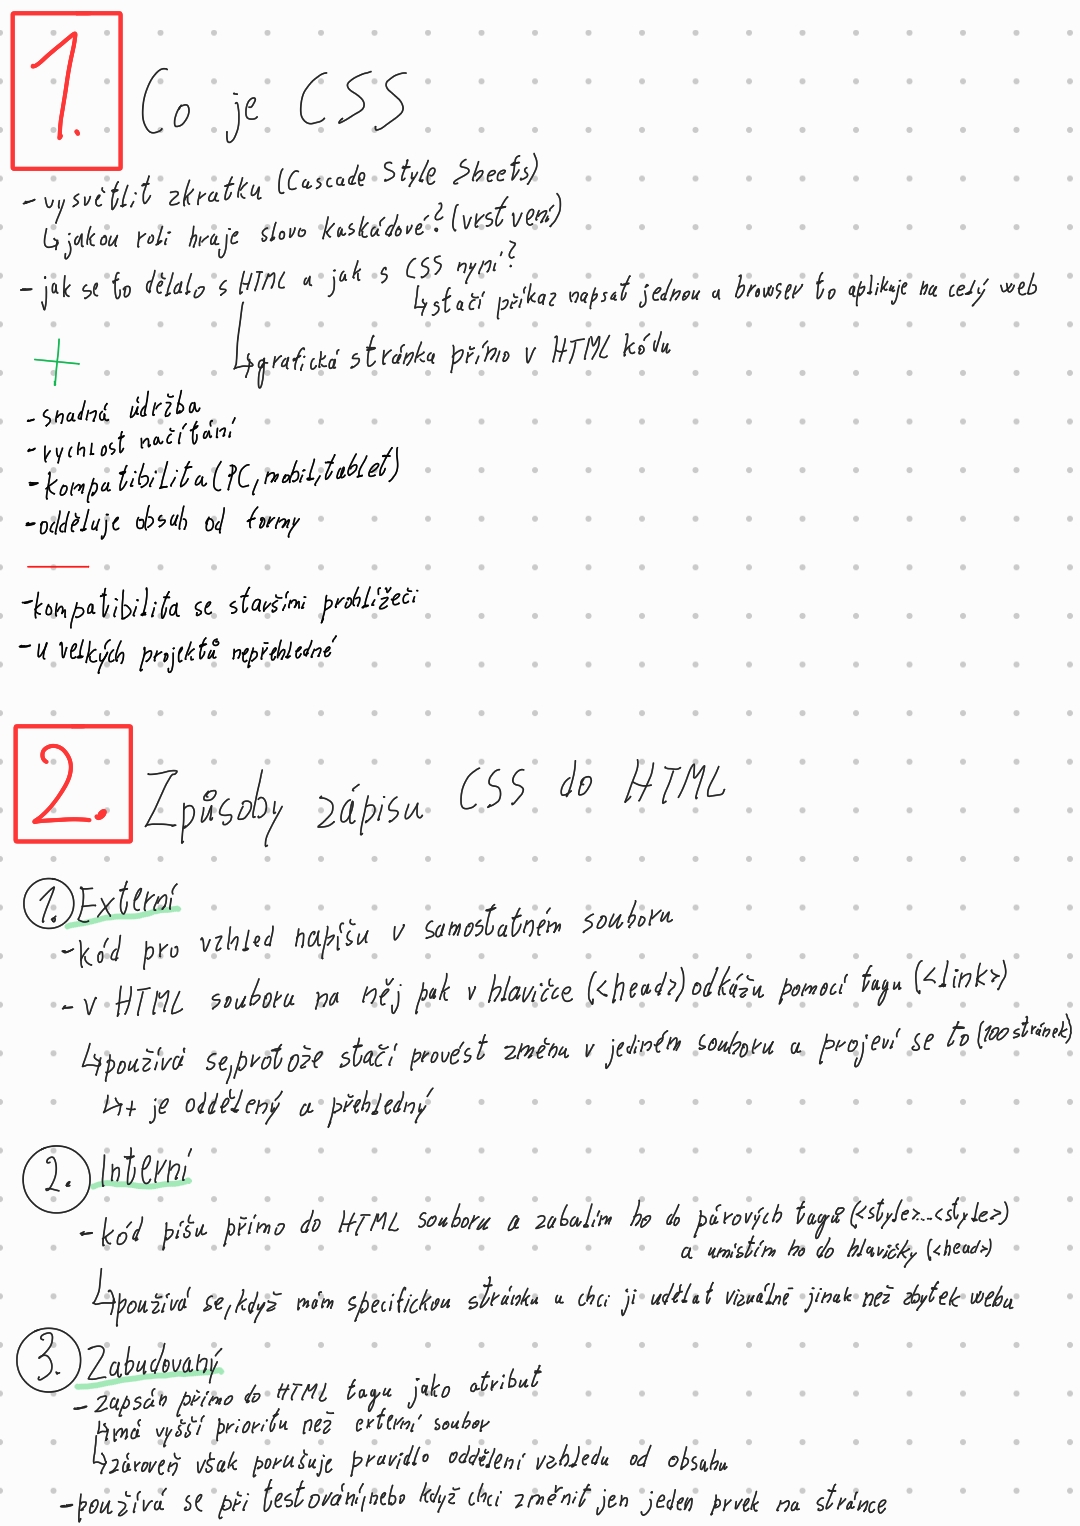 1. Co je CSS
- vysvětlit zkratku (Cascade Style Sheets)
↳ jakou roli hraje slovo kaskádové? (vrstvení)
- jak se to dělalo s HTML a jak s CSS nyní?
↳ stačí příkaz napsat jednou a browser to aplikuje na celý web
↳ grafická stránka přímo v HTML kódu
+
- snadná údržba
- rychlost načítání
- kompatibilita (PC, mobil, tablet)
- odděluje obsah od formy
—
- kompatibilita se staršími prohlížeči
- u velkých projektů nepřehledné
2. Způsoby zápisu CSS do HTML
1. Externí
- kód pro vzhled napíšu v samostatném souboru
- v HTML souboru na něj pak v hlavičce (<head>) odkážu pomocí tagu (<link>)
↳ používá se, protože stačí provést změnu v jediném souboru a projeví se to (100 stránek)
↳ + je oddělený a přehledný
2. Interní
- kód píšu přímo do HTML souboru a zabalím ho do párových tagů (<style>...<style>)
a umístím ho do hlavičky (<head>)
↳ používá se, když mám specifickou stránku a chci ji udělat vizuálně jinak než zbytek webu
3. Zabudovaný
- zapsán přímo do HTML tagu jako atribut
↳ má vyšší prioritu než externí soubor
↳ zároveň však porušuje pravidlo oddělení vzhledu od obsahu
- používá se při testování, nebo když chci změnit jen jeden prvek na stránce